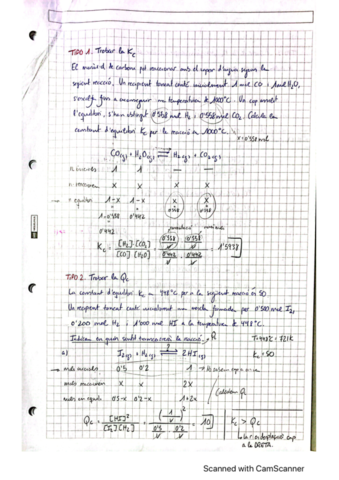 TIPO 1. Trobar la Kc
El monòxid de carboni pot reaccionar amb el vapor d'aigua segons la
següent reacció. Un recipient tancat conté inicialment 1 mol CO i 1 mol H2O,
a una temperatura de 1000°C. Un cop assolit
l'equilibri, s'han obtingut 0'558 mol H2 i 0'558 mol CO2. Calcula la
constant d'equilibri Kc per la reacció a 1000°C.
x = 0'558 mol
CO(g) + H2O(g) ⇌ H2(g) + CO2(g)
n. inicials 1 1 — —
n. reaccionen x x x x
n. equilibri 1-x 1-x x x
1-0'558 0'442 0'558 0'558
Kc = [H2]·[CO2] / [CO]·[H2O] = 0'558/V · 0'558/V / 0'442/V · 0'442/V = 1'5938
TIPO 2. Trobar la Qc
La constant d'equilibri Kc a 448°C per a la següent reacció és 50
Un recipient tancat conté inicialment una mescla formada per 0'500 mol I2,
0'200 mol H2 i 1'000 mol HI a la temperatura de 448°C.
Indiqueu en quin sentit transcorrerà la reacció.
T=448°C = 721K
a) I2(g) + H2(g) ⇌ 2HI(g) Kc = 50
mols inicials 0'5 0'2 1
mols reaccionen x x 2x
mols en equilib 0'5-x 0'2-x 1+2x
Calculem Q
Qc = [HI]² / [I2][H2] = (1/V)² / 0'5/V · 0'2/V = 10
Kc > Qc
a la DRETA.
Scanned with CamScanner